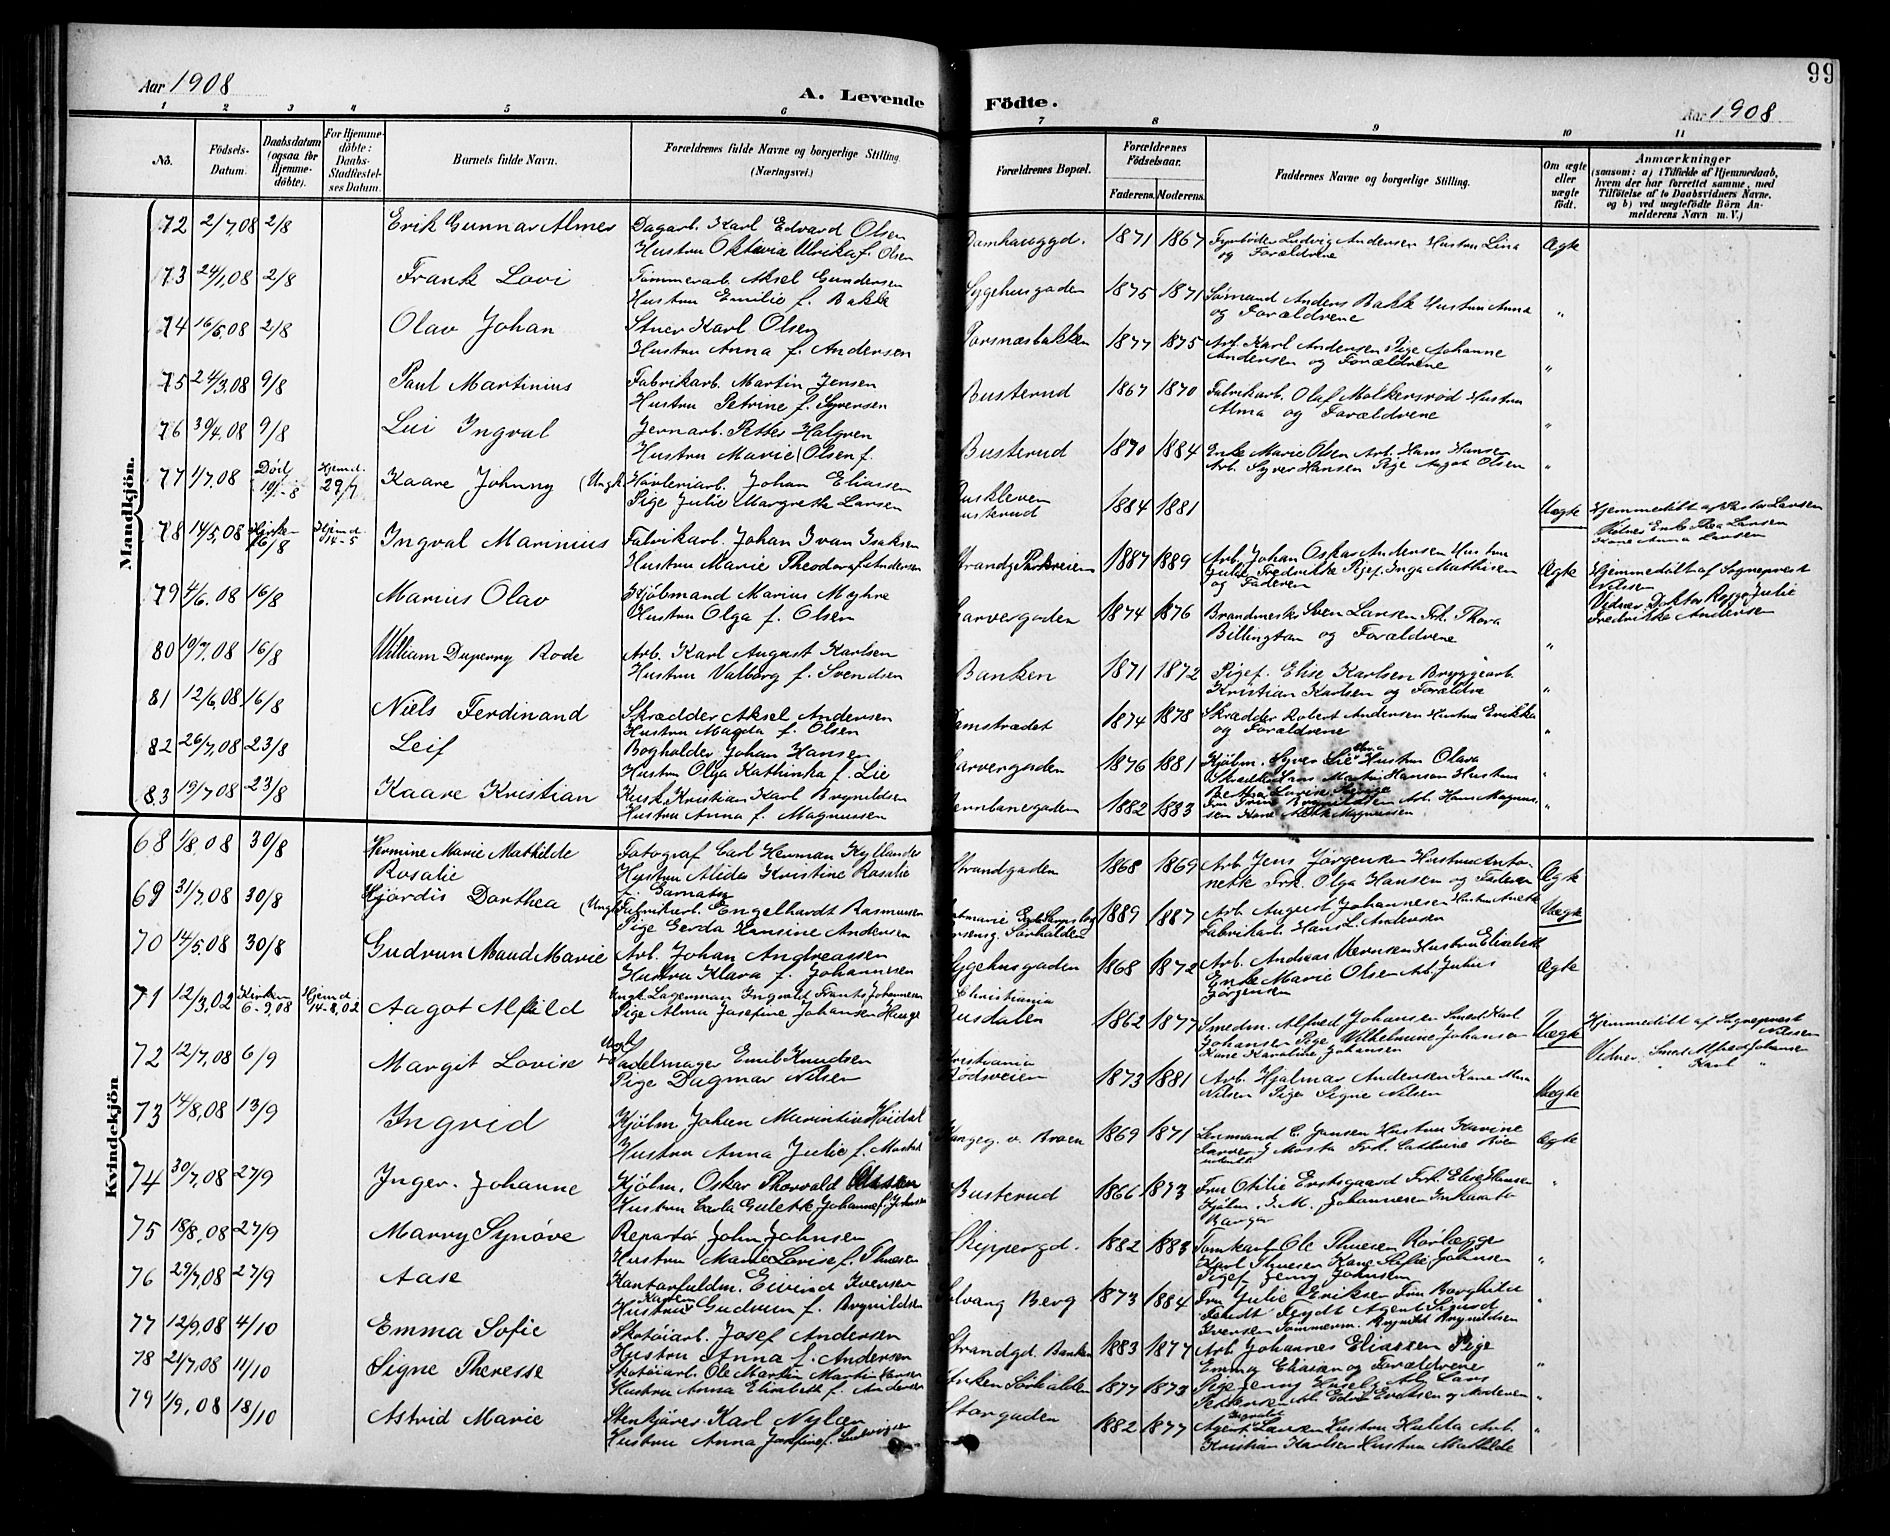 99
Aar 1908
A. Levende Födte.
Aar 1908
1 2 3 4 5 6 7 8 9 10 11
No.
Födsels-Datum.
Daabsdatum (ogsaa for Hjemmedöbte).
For Hjemmedöbte: Daabs-Stadfæstelses Datum.
Barnets fulde Navn.
Forældrenes fulde Navne og borgerlige Stilling. (Næringsvei.)
Forældrenes Bopæl.
Forældrenes Födselsaar.
Faderens. Moderens.
Faddernes Navne og borgerlige Stilling.
Om ægte eller uægte födt.
Anmærkninger
(saasom: a) i Tilfælde af Hjemmedaab, hvem der har forrettet samme, med Tilföielse af to Daabsvidners Navne. og b) ved uægtefödte Börn Anmelderens Navn m. V.)
Mandkjön.
72 2/7,08 2/8 Erik Gunnar Almer Dagarb. Karl Edvard Olsen Damhauggd. 1871 1867 Fyrböder Ludvig Andersen Hustru Lina Ægte
Hustru Oktavia Ulrika f. Olsen og Forældrene
73 24/1,08 2/8 Frank Lovi Tømmerarb. Aksel Gundersen Sygehusgaden 1875 1871 Sømand Anders Bakk Hustru Anna "
Hustru Emilie f. Bakke og Forældrene
74 16/5,08 2/8 Olav Johan Stuer Karl Olsen 1877 1875 Arb. Karl Andersen Pige Johanne "
Hustru Anna f. Andersen Andersen og Forældrene
75 24/3,08 9/8 Paul Martinius Fabrikarb. Martin Jensen Busterud 1867 1870 Fabrikarb. Olaf Molkersrød Hustru "
Hustru Petrine f. Syversen Alma og Forældrene
76 30/4,08 9/8 Lui Ingval Jernarb. Petter Halgren Busterud 1870 1884 Enke Marie Olsen Arb. Hans Hansen "
Hustru Marie Olsen f. Arb. Syver Hansen Pige Aagot Olsen
77 1/7,08 Død Hjemd. 29/7 Kaare Johnny (Ungk. Høvleriarb. Johan Eliassen 1884 1881 Uægte Hjemmedöbt af Pastor Larsen
Pige Julie Margrethe Larsen Busterud Enke Thea Larsen
Kone Anna Larsen
78 14/5,08 Kirke 16/8 Hjemd. 14-5 Ingval Marinius Fabrikarb. Johan Ivan Isaksen 1887 1889 Arb. Johan Oskar Andersen Hustru Ægte Hjemmedöbt af Sogneprest
Hustru Marie Theodora f. Andersen Julie Fredrikke Pigef. Inga Mathisen og Faderen Nilsen
79 4/6.08 16/8 Marius Olav Kjöbmand Marius Myhre Garvergaden 1874 1876 Brandmester Sven Larsen Frk. Thora Vidner: Doktor Rygg Julie
Hustru Olga f. Olsen Billington og Forældrene " Fredrikke Andersen
80 19/7,08 16/8 William Duperry Rode Arb. Karl August Karlsen Banken 1871 1872 Pigef. Elise Karlsen Bryggearb. "
Hustru Valborg f. Svendsen Kristian Karlsen og Forældre
81 12/6,08 16/8 Niels Ferdinand Skrædder Aksel Andersen Damstrædet 1874 1878 Skrædder Robert Andersen Hustru Erikka "
Hustru Magda f. Olsen og Forældrene
82 26/7,08 23/8 Leif Bogholder Johan Hansen Garvergaden 1876 1881 Kjøbm. Syver Lie Hustru Olava "
Hustru Olga Kathinka f. Lie Martin Hansen Hustru
83 19/7 08 23/8 Kaare Kristian Kusk Kristian Karl Brynildsen Jernbanegaden 1882 1883 Arb. Hans Magnus- "
Hustru Anna f. Magnussen sen Kone Magnussen
Kvindekjön
68 1/8.08 30/8 Hermine Marie Mathilde Fotograf Carl Herman Kyllander Strandgaden 1868 1869 Arb. Jens Jørgensen Hustru Anto- Ægte
Rosalie Hustru Alida Kristine Rosalie nette Frk. Olga Hansen og Faderen
69 31/7,08 30/8 Hjördis Dorthea (Ungk. Fabrikarb. Engelhardt Rasmussen 1889 1887 Arb. August Johannesen Hustru Anette Uægte
Pige Gerda Hansine Andersen Fabrikarb. Hans L. Andersen
70 14/5.08 30/8 Gudrun Maud Marie Arb. Johan Andreassen Sygehusgaden 1868 1872 Arb. Andreas Hustru Elisabeth Ægte
Hustru Klara f. Johannesen Enke Marie Olsen Arb. Julius Jørgensen
71 12/3,02 Kirken 6-9,08 Hjemd. 14-8,02 Aagot Alfild Ungk. Lagerman Ingvald Frants Johannesen Christiania 1862 1877 Smedm. Alfred Johansen Smed Karl Uægte Hjemmedöbt af Sogneprest
Pige Alma Josefine Johansen Johansen Pige Wilhelmine Johansen Nilsen
Kone Karoline Johansen Vidner: Smed Alfred Johansen
" Karl "
72 12/7,08 6/9 Margit Lovise Ungk. Sadelmager Emil Knudsen Kristiania 1873 1881 Arb. Hjalmar Andersen Kone Uægte
Pige Dagmar Nilsen Rødsveien Nilsen Pige Signe Nilsen
73 14/8,08 13/9 Ingrid Kjøbm. Johan Marintius Høidal 1869 1871 Lensmand C. Jansen Hustru Karine Ægte
Hustru Anna Julie f. Mosta Farver J. Mosta Frk. Cathrine
74 30/7,08 27/9 Inger. Johanne Kjøbm. Oskar Thorvald Busterud 1866 1873 Fru Otilie Frk. Elise Hansen "
Hustru Carla Gulette Johanne f. Kjøbm. J. M. Johannesen
75 18/8,08 27/9 Marry Synøve Reparatør John Johnsen Skippergd. 1882 1883 Tomtkarl Ole Thuesen Rørlægge "
Hustru Marie Lovise f. Thuesen Karl Thuesen Kone Sofie Johnsen
Pigef. Jenny Johnsen
76 29/7,08 27/9 Aase Kontorfuldm. Eivind Iversen Solvang Berg 1873 1884 Fru Julie Eriksen Fru Borghild "
Hustru Gudrun f. Brynildsen Agent Sigurd
Iversen Tømmerm. Brynild Brynildsen
77 12/9,08 4/10 Emma Sofie Skotøiarb. Josef Andersen Strandgd. Banken 1883 1877 Arb. Johannes Eliassen Pige
Hustru Anna f. Andersen Emma Eliasen og Forældrene "
78 21/7,08 11/10 Signe Theresse Skotøiarb. Ole Martin Martin Hansen 1877 1873 Pige Jenny Arb. Lars
Hustru Anna Elisabeth f. Andersen Pettersen og Moderen "
79 1/9,08 18/10 Astrid Marie Stenkjører Karl Nylæn Storgaden 1882 1877 Agent Larsen Hustru Hulda Arb.
Hustru Anna Josefine f. Ludvigsen Kristian Karlsen Hustru Mathilde "